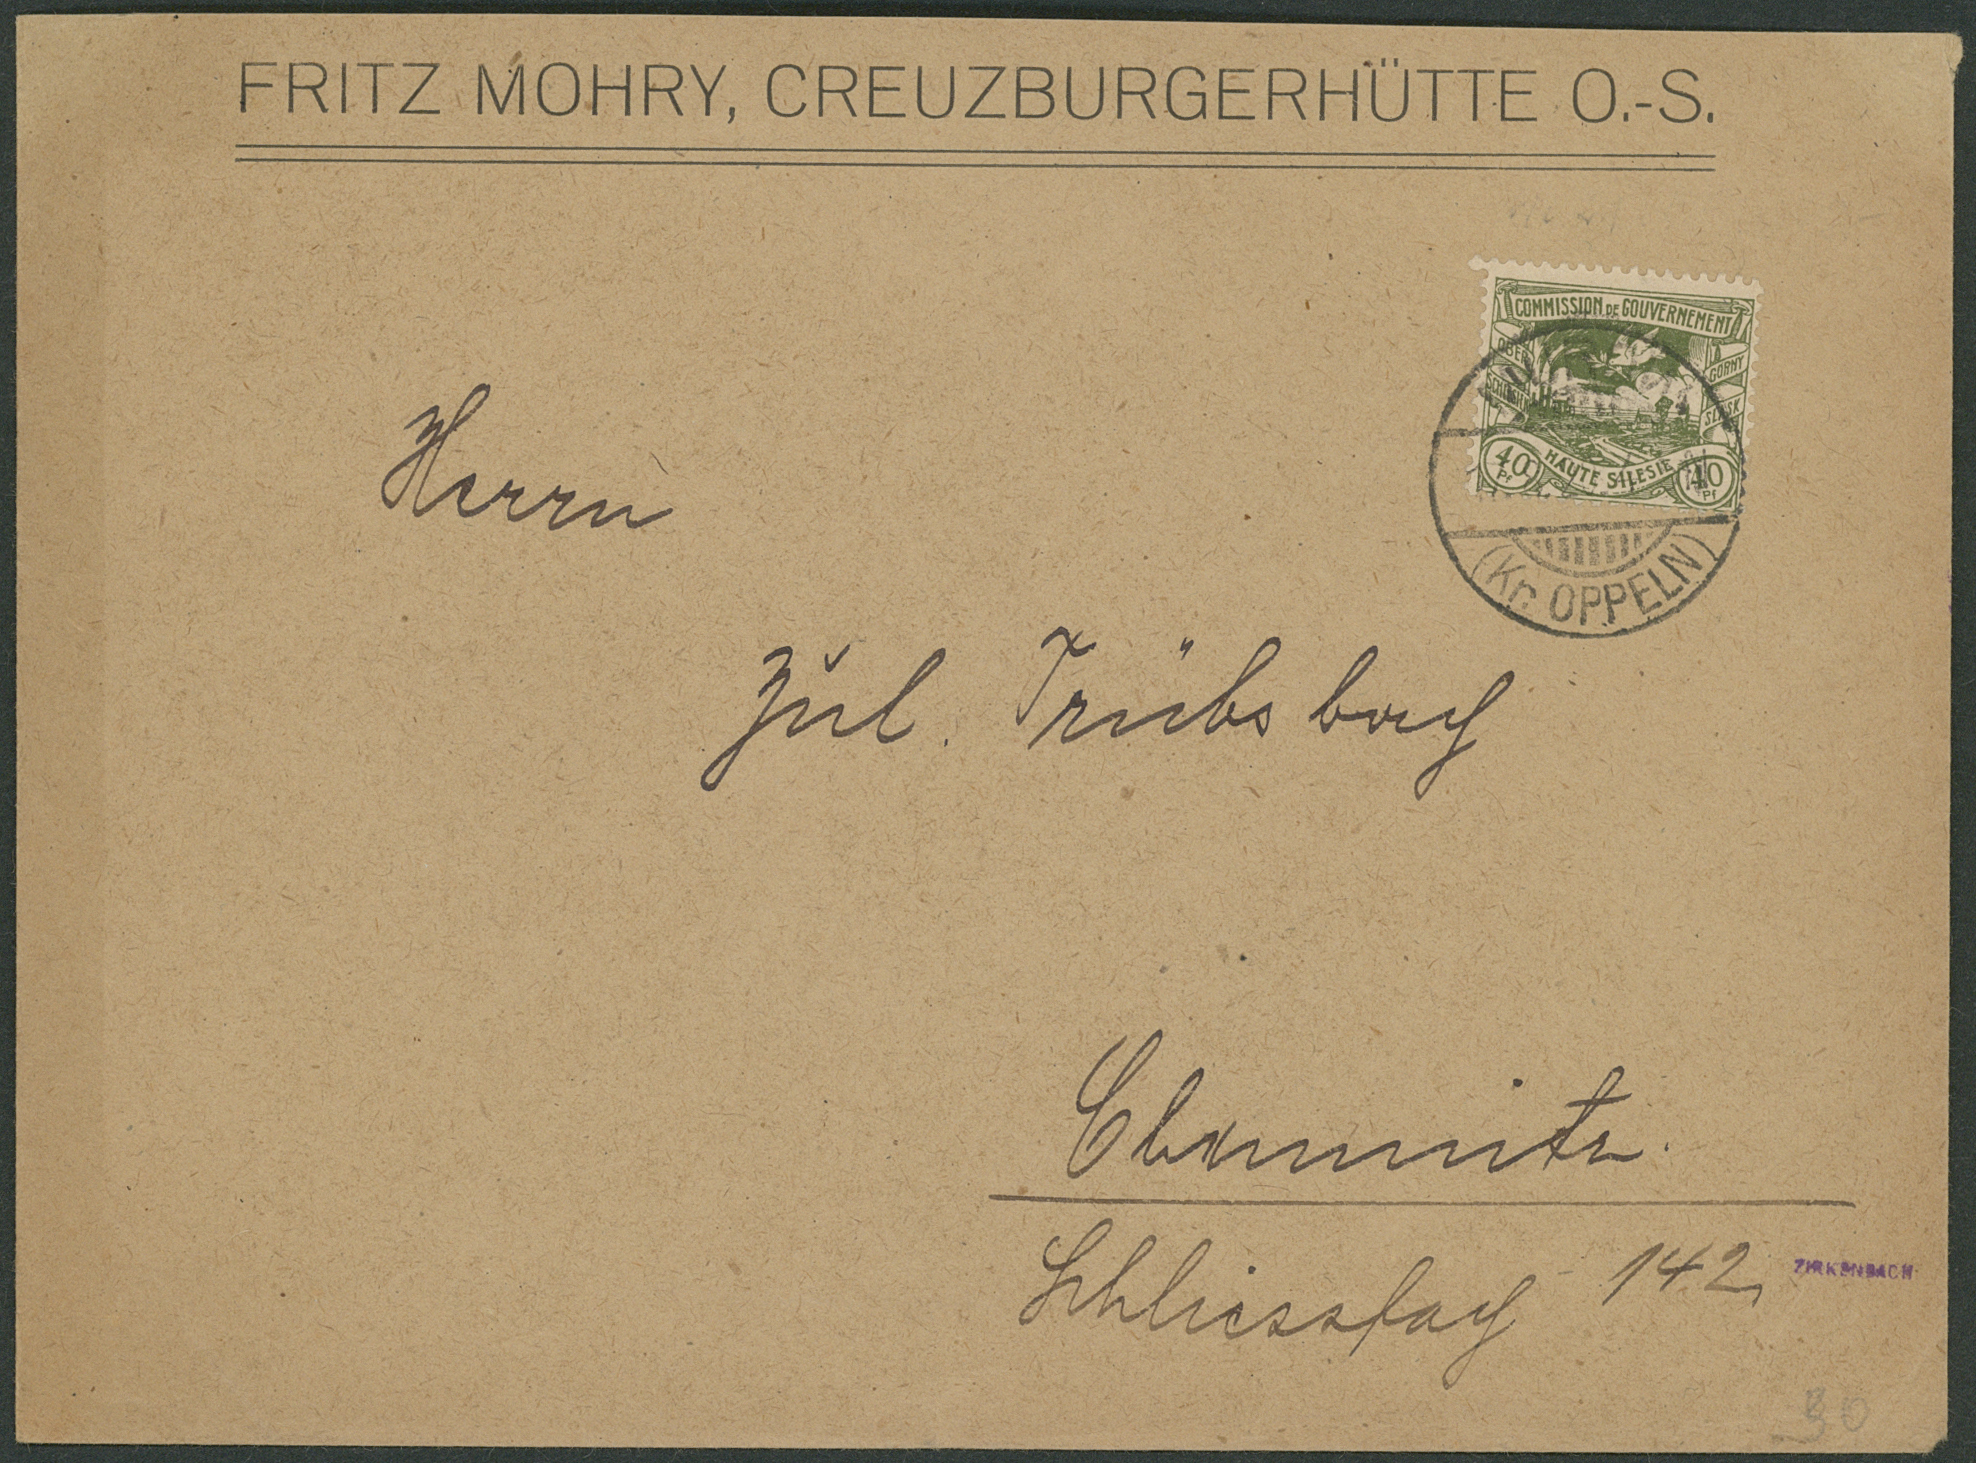 FRITZ MOHRY, CREUZBURGERHÜTTE O.-S.
COMMISSION DE GOUVERNEMENT
OBER
SCHLESIEN
GORNY
SLASK
HAUTE SILESIE
40 Pf
40 Pf
(Kr. OPPELN)
Herrn
Jul. Trübsbach
Chemnitz.
Schliessfach 142
ZIRKENBACH
30